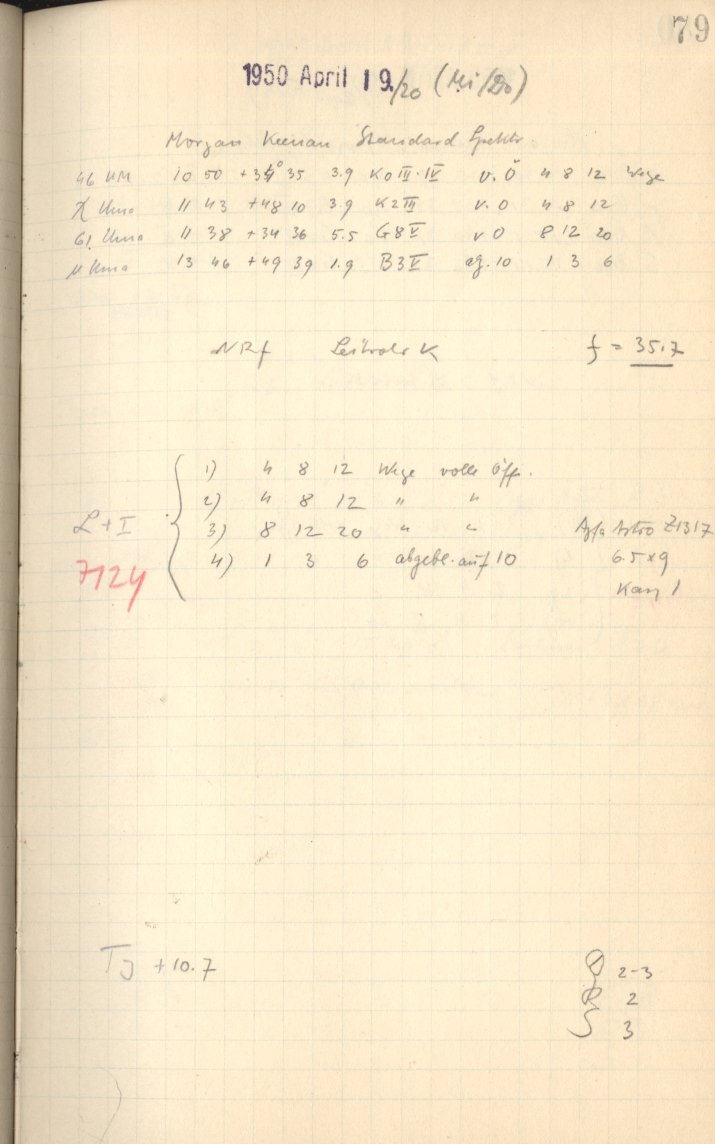 79
1950 April 19./20 (Mi/Do)
Morgan Keenan Standard Spektr.
46 LM 10 50 +34° 35 3.9 K0 III-IV v. Ö 4 8 12 Wege
χ Uma 11 43 +48 10 3.9 K2 III v. O 4 8 12
61 Uma 11 38 +34 36 5.5 G8 V v O 8 12 20
Uma 13 46 +49 39 1.9 B3 V ag. 10 1 3 6
NRf K f = 35.7
1) 4 8 12 Wege volle Öff.
2) 4 8 12 " "
L + I 3) 8 12 20 " " Agfa Astro Z1317
7124 4) 1 3 6 abgebl. auf 10 6.5 x 9
Kass 1
TJ +10.7
2-3
R 2
S 3